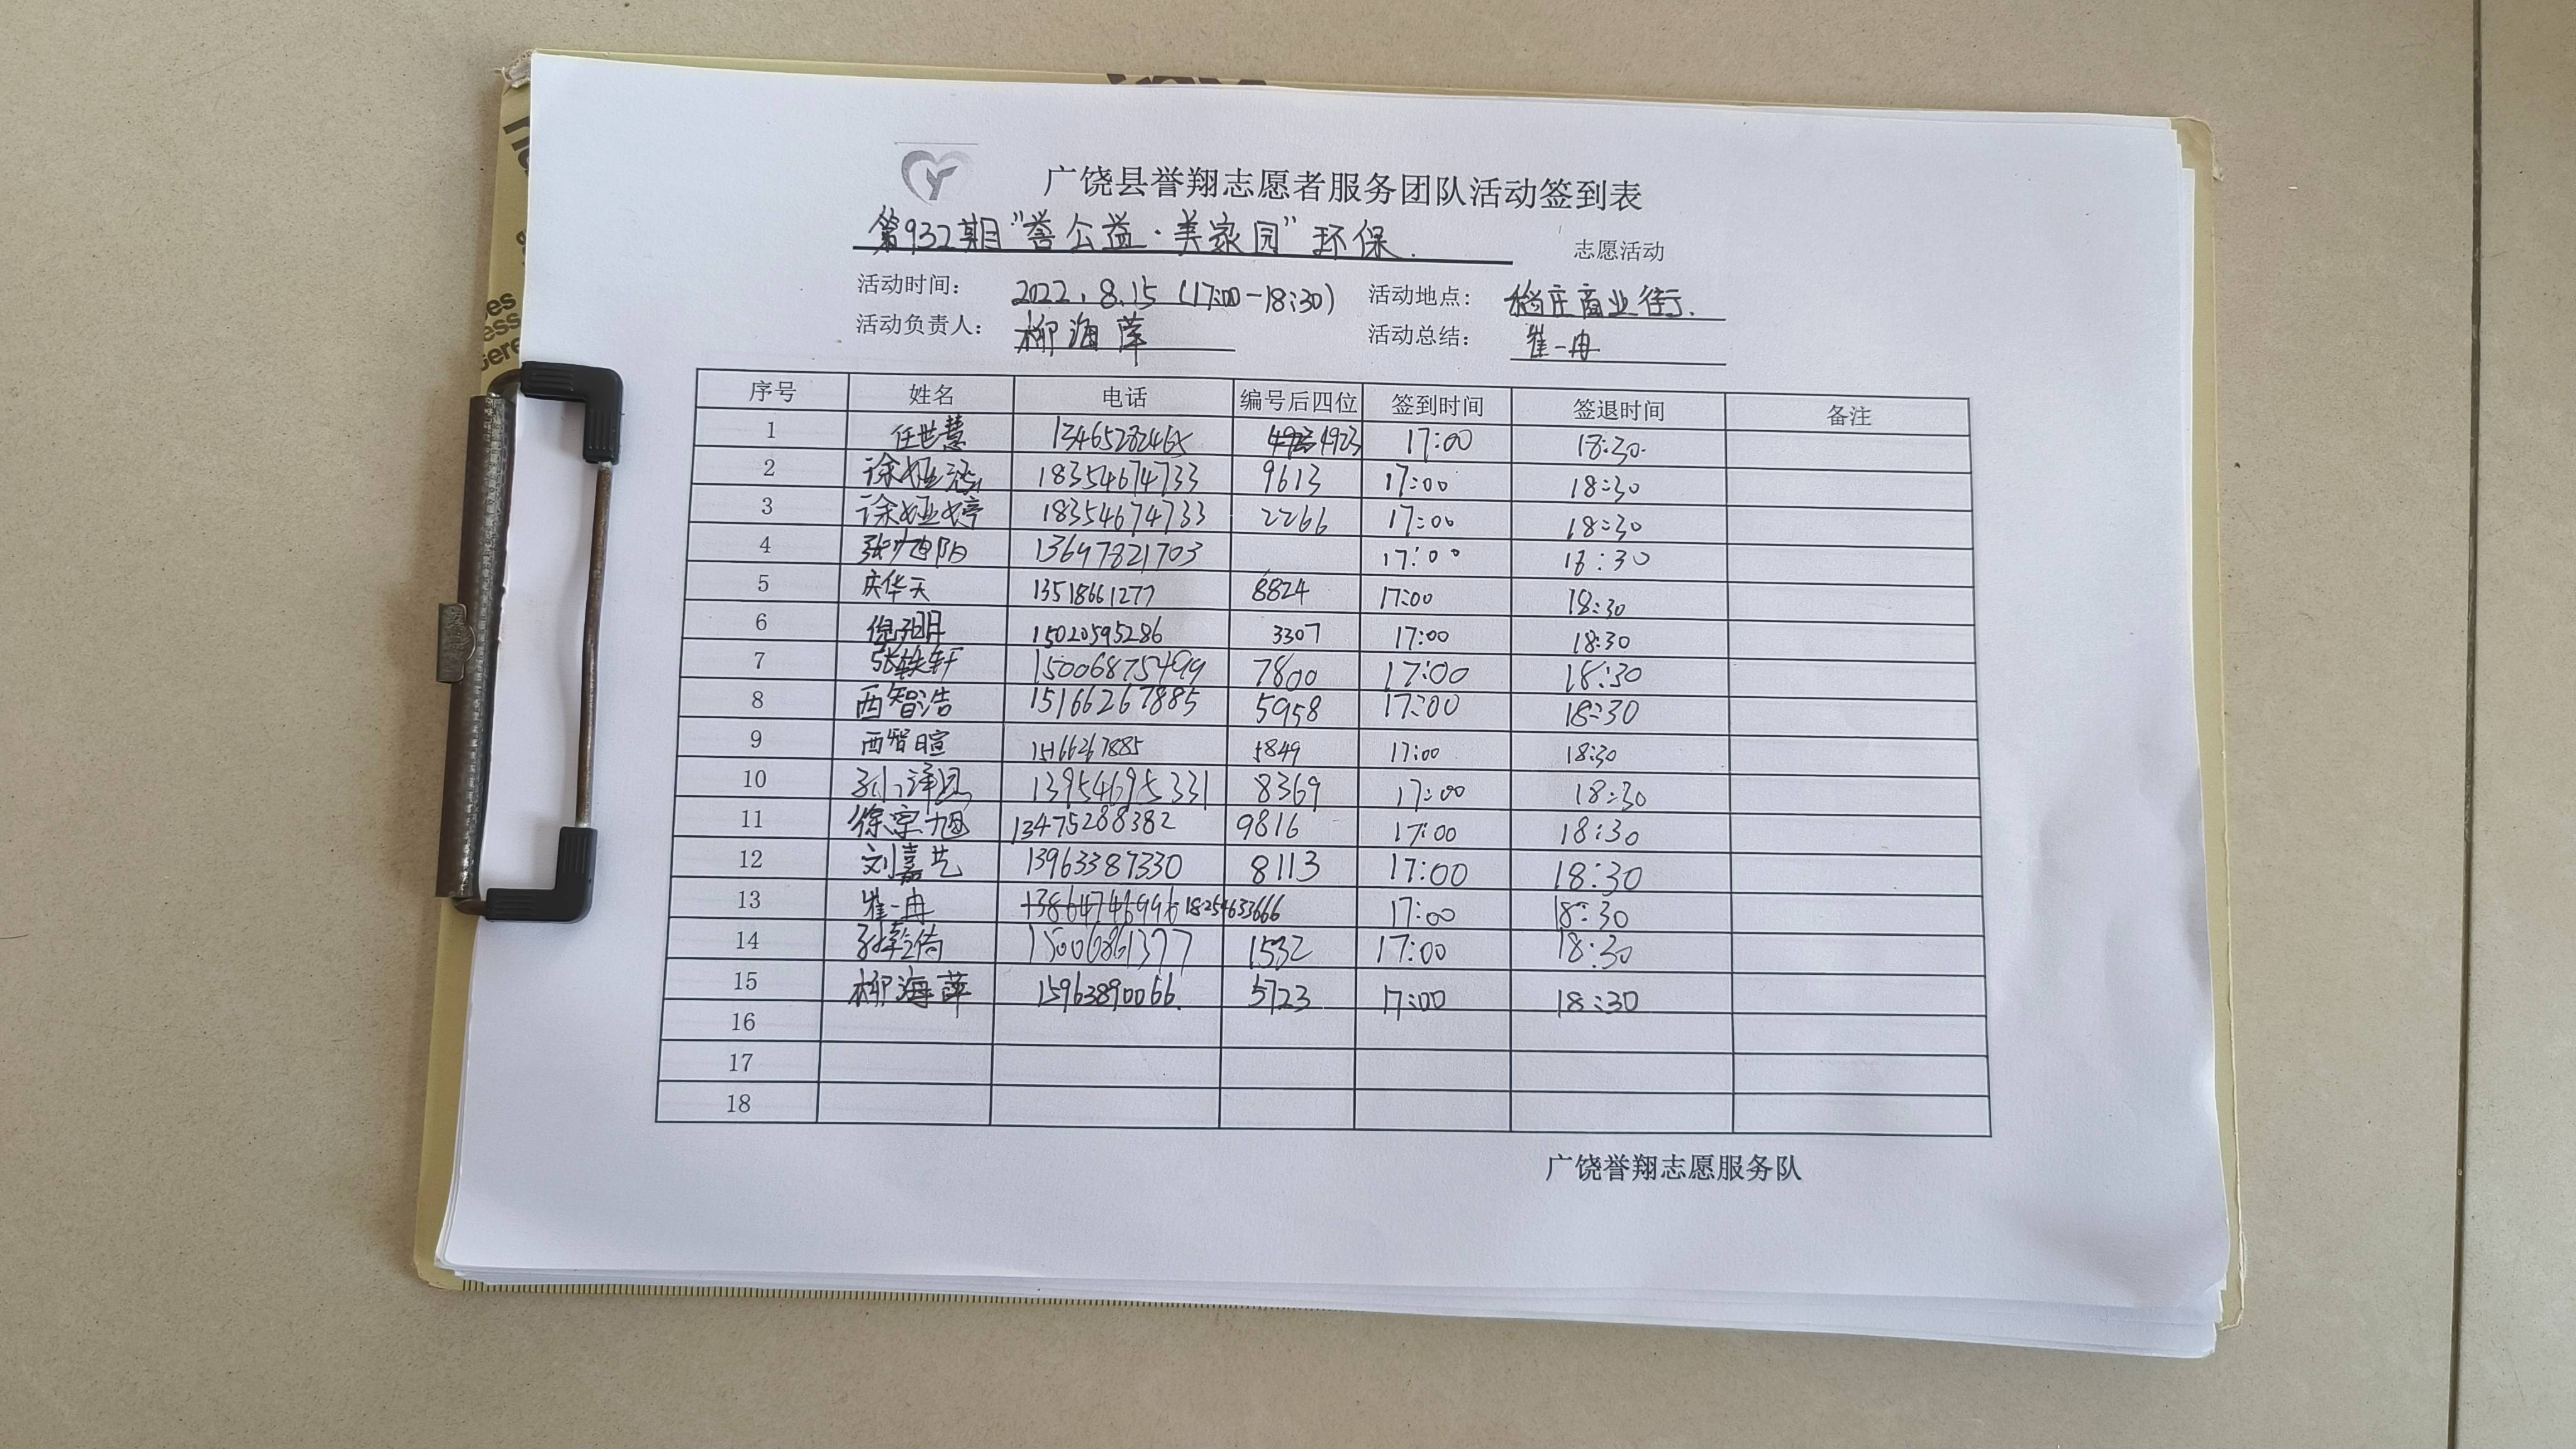 广饶县誉翔志愿者服务团队活动签到表
第932期"誉公益·美家园"环保. 志愿活动
活动时间: 2022.8.15 (17:00-18:30) 活动地点: 稻庄商业街.
活动负责人: 柳海萍 活动总结: 崔一冉
序号 姓名 电话 编号后四位 签到时间 签退时间 备注
1 任世慧 1346528246 4923 17:00 18:30.
2 徐娅 18354674733 9613 17:00 18:30
3 徐娅婷 18354674733 2266 17:00 18:30
4 张旭阳 13697821703 17:00 18:30
5 庆华天 13518661277 8824 17:00 18:30
6 倪 15020595286 3307 17:00 18:30
7 张轶轩 15006875499 7800 17:00 18:30
8 西智浩 15166267885 5958 17:00 18:30
9 西智暄 15166267885 5849 17:00 18:30
10 孙译 13954695331 8369 17:00 18:30
11 徐宗旭 13475288382 9816 17:00 18:30
12 刘嘉艺 13963387330 8113 17:00 18:30
13 崔一冉 13864746996 18254633666 17:00 18:30
14 孙倚 15006861377 1532 17:00 18:30
15 柳海萍 15963890066. 5723 17:00 18:30
16
17
18
广饶誉翔志愿服务队